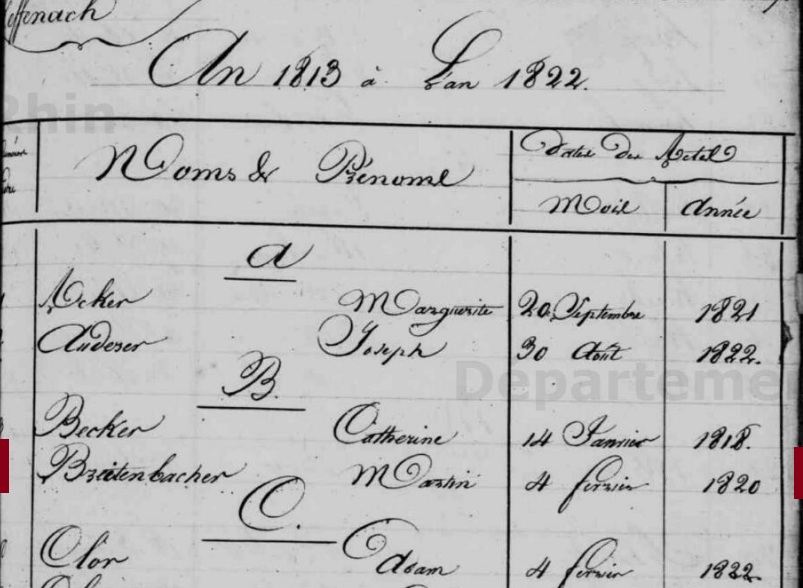 An 1813 à L'an 1822.
Rhin
Noms & Prénoms
Dates des Actes
Mois Année
A
Acker Marguerite 20 Septembre 1821
Joseph 30 Août 1822.
Departeme
B.
Becker Catherine 14 Janvier 1818.
Breitenbacher Martin 4 fevrier 1820
C.
Clor Adam 4 fevrier 1822.